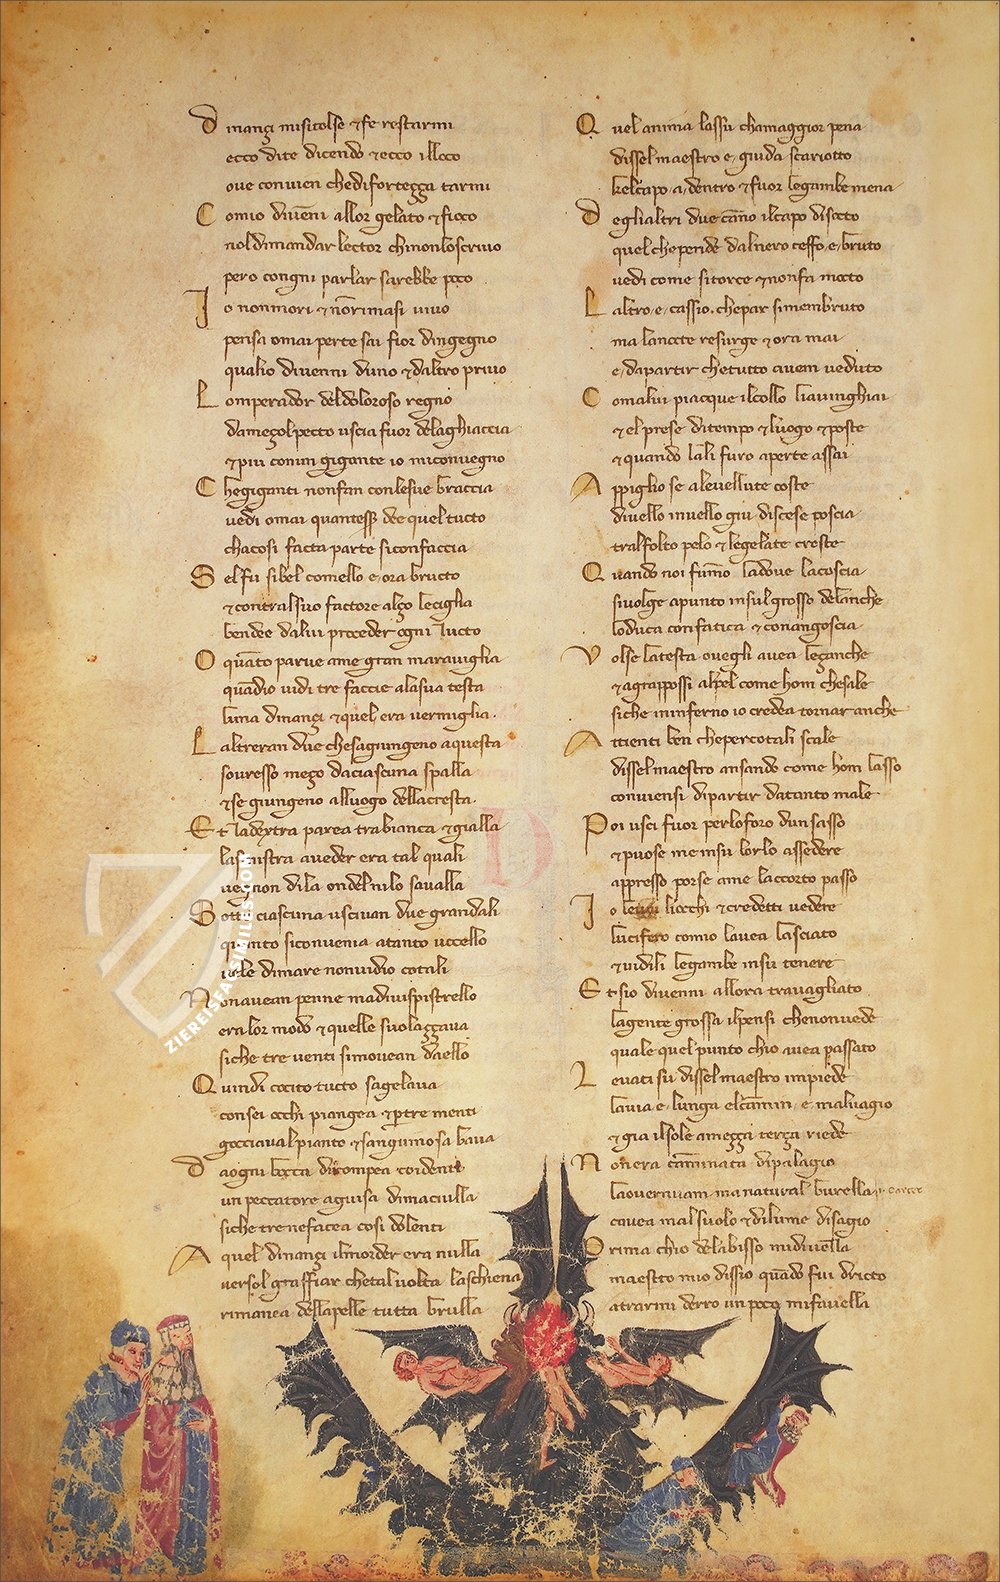 D inançi misitolse ⁊ fe restarmi
ecco dite dicendo ⁊ ecco illoco
oue conuien chedifortegga tarmi
C omio diuenni allor gelato ⁊ fioco
nol dimandar lector chinonloscriuo
pero congni parlar sarebbe poco
I o nonmori ⁊ nonrimasi uiuo
pensa omai perte sai fior dingegno
qualio diuenni duno ⁊ daltro priuo
L omperador deldoloroso regno
dameçol pecto uscia fuor delaghiaccia
⁊ piu conun gigante io miconuegno
C hegiganti nonfan conlesue braccia
uedi omai quantesser dee quel tucto
chacosi facta parte siconfaccia
S elfu sibel comello e ora bructo
⁊ contralsuo factore alço leciglia
bendee dalui proceder ogni lucto
O quanto parue ame gran marauiglia
quadio uidi tre faccie alasua testa
luna dinançi ⁊ quel era uermiglia
L altreran due chesagiungeno aquesta
souresso meço daciascuna spalla
⁊ se giungeno alluogo dellacresta
E t ladextra parea tra bianca ⁊ gialla
lasinistra aueder era tal quali
uegnon dila ondelnilo saualla
S otto ciascuna usciuan due grandali
quanto siconuenia atanto uccello
uele dimare nonuidio cotali
N onauean penne madiuispistrello
era lor modo ⁊ quelle suolaççaua
siche tre uenti simouean daello
Q uindi cocito tucto sagelaua
consei occhi piangea ⁊ per tre menti
gocciaual pianto ⁊ sanguinosa baua
D aogni bocca dirompea coidenti
un peccatore aguisa dimaciulla
siche tre nefacea cosi dolenti
A quel dinançi ilmorder era nulla
uersol graffiar chetal uolta laschiena
rimanea dellapelle tutta brulla
Q uel anima lassu chamaggior pena
dissel maestro e giuda scariotto
kelcapo a dentro ⁊ fuor legambe mena
D eglialtri due canno ilcapo disotto
quel chepende dalnero ceffo e bruto
uedi come sitorce ⁊ nonfa motto
L altro e cassio chepar simembruto
ma lanocte resurge ⁊ ora mai
e dapartir chetutto auem ueduto
C omalui piacque ilcollo liauinghiai
⁊ el prese ditempo ⁊ luogo ⁊ poste
⁊ quando lali furo aperte assai
A ppiglio se aleuellute coste
diuello inuello giu discese poscia
tralfolto pelo ⁊ legelate croste
Q uando noi fummo ladoue lacoscia
siuolge apunto insulgrosso delanche
loduca confatica ⁊ conangoscia
V olse latesta ouegli auea leçanche
⁊ agrappossi alpel come hom chesale
siche ininferno io credea tornar anche
A ttienti ben chepercotali scale
dissel maestro ansando come hom lasso
conuiensi dipartir datanto male
P oi usci fuor perloforo dunsasso
⁊ puose me insu lorlo assedere
appresso porse ame laccorto passo
I o leuai liocchi ⁊ credetti uedere
lucifero comio lauea lasciato
⁊ uidili legambe insu tenere
E t sio diuenni allora trauagliato
lagente grossa ilpensi chenonuede
quale quel punto chio auea passato
L euati su dissel maestro inpiede
lauia e lunga elcamin e maluagio
⁊ gia ilsole ameçça terça riede
N onera caminata dipalagio
lauoueruam manatural burella
cauea mal suolo ⁊ dilume disagio
P rima chio delabisso midiuella
maestro mio dissio quando fui dricto
atrarmi derro un poco mifauella
ZIEREISFACSIMILES.COM